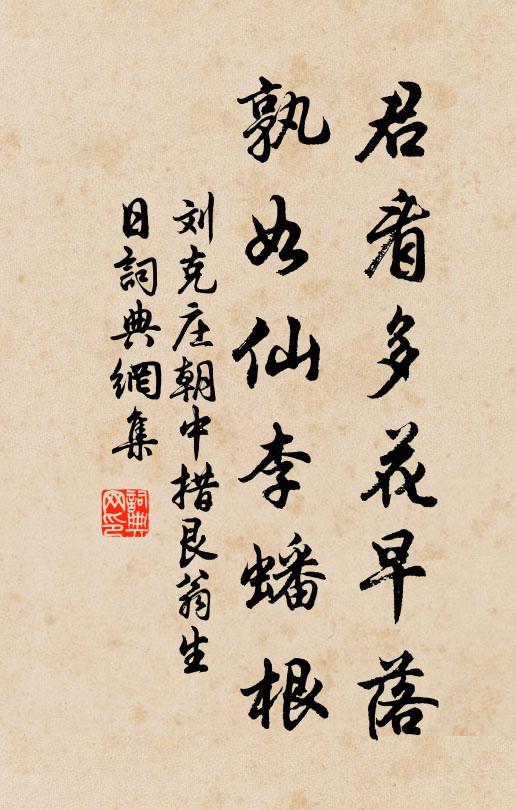 君看多花早落
孰如仙李蟠根
刘克庄朝中措艮翁生
日詞典網集
詞典網印